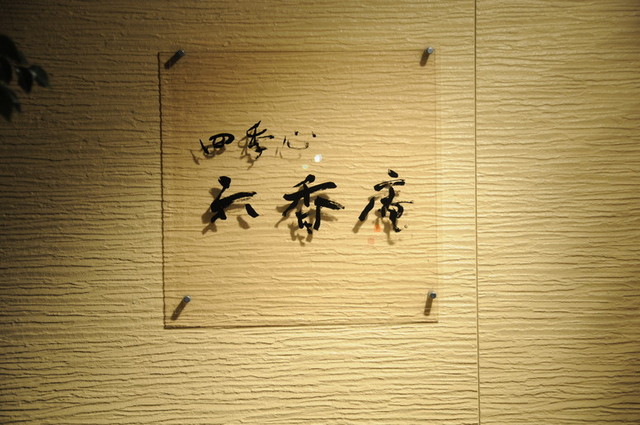 四季心
六香庵